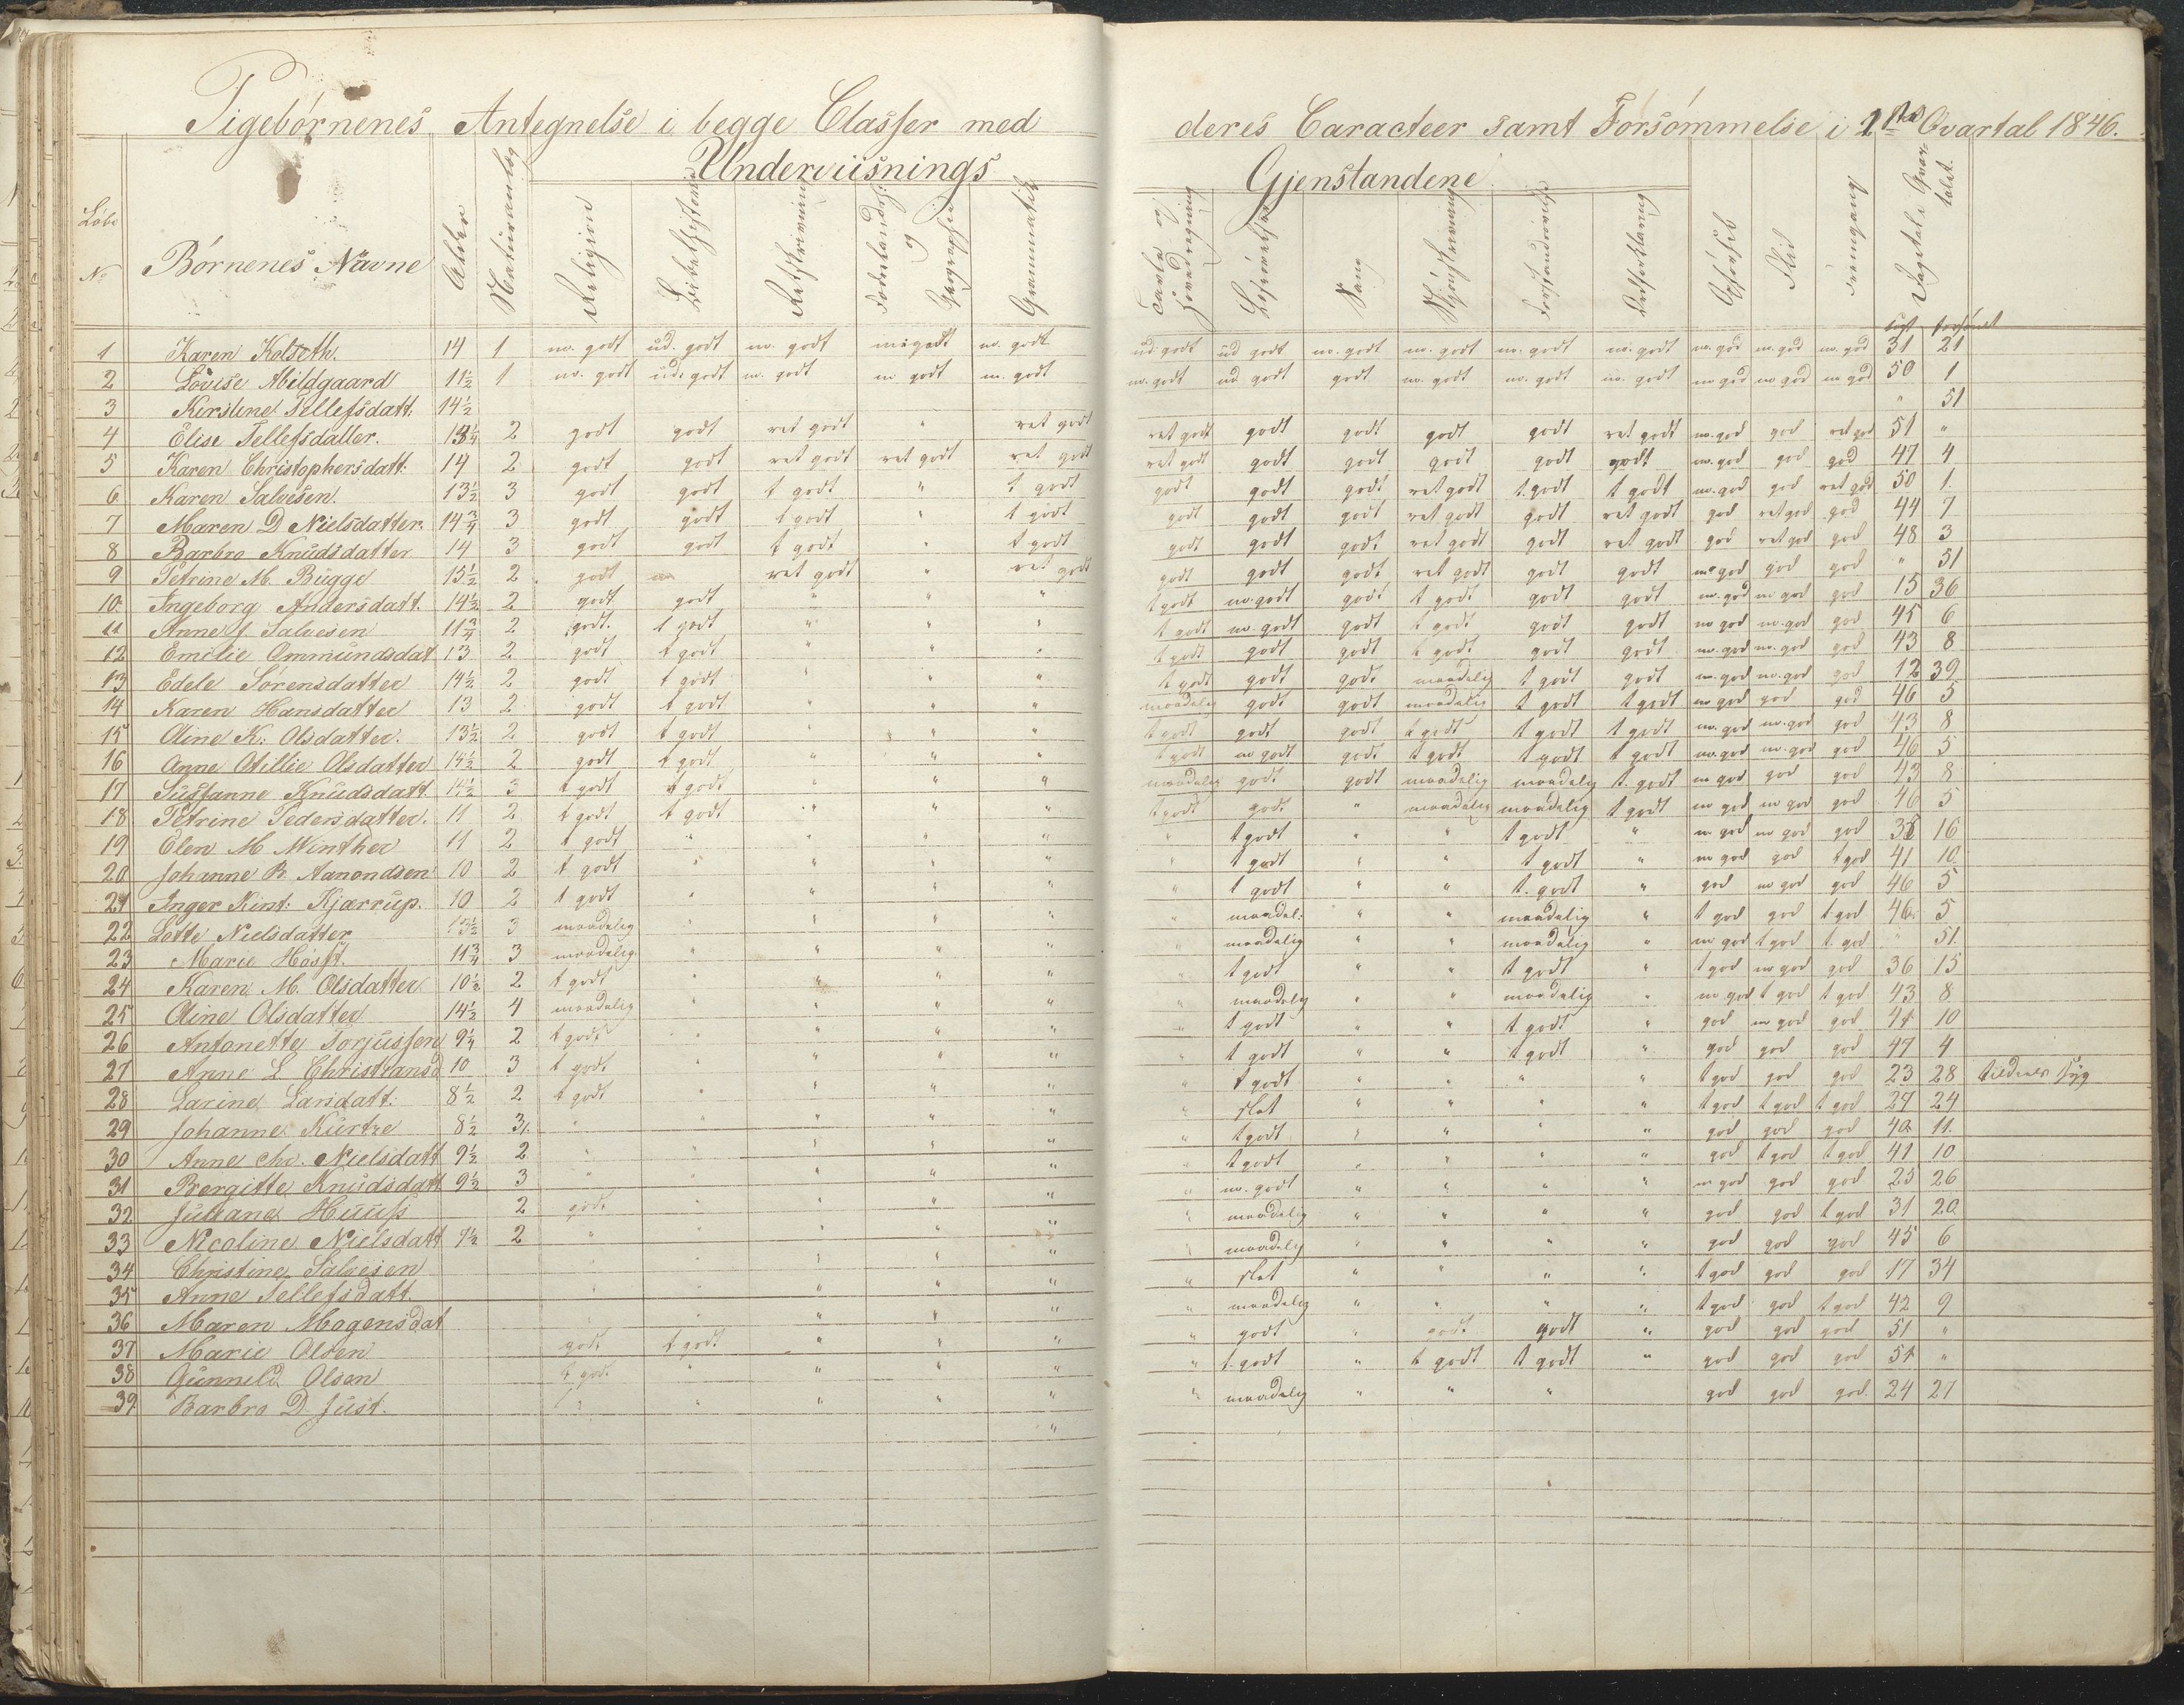 Pigebørnenes Antegnelse i begge Classer med deres Caracteer samt Forsømmelse i 2det Qvartal 1846.
Underviisnings Gjenstandene
Løbe No Børnenes Navne Alder Religion Bibelhistorie Retskrivning Fødelandets og Geographie Grammatik Tavle og Hovedregning Sang Skjønskrivning Opførsel Flid Fremgang
søgt forsømt
1 Karen Kolseth. 14 1 m. godt ud. godt m. godt m. godt m. godt ud. godt ud godt m. godt m. godt m. godt m. godt m. god m. god m. god 31 21
2 Lovise Abildgaard 11½ 1 m. godt ud. godt m. godt m godt m. godt m. godt ud godt godt m. godt m. godt m. godt m god m god m god 50 1
3 Kirstine Tellefsdatt. 14½ " 51
4 Elise Tellefsdatter. 13¼ 2 godt godt ret godt " ret godt ret godt godt godt godt godt ret godt m. god god ret god 51 "
5 Karen Christophersdatt. 14 2 godt godt ret godt ret godt ret godt ret godt godt godt godt godt godt m. god god god 47 4
6 Karen Salvesen. 13½ 3 godt godt t godt " t godt godt godt godt ret godt t. godt t godt m. god god ret god 50 1.
7 Maren D Nielsdatter. 14¾ 3 godt godt t godt " t godt godt godt godt ret godt godt ret godt god ret god god 44 7
8 Barbro Knudsdatter 14 3 godt godt t godt " t godt godt godt godt ret godt godt ret godt god ret god god 48 3
9 Petrine M. Bugge 13½ 2 godt ret godt " ret godt godt godt godt ret godt godt godt m god god god " 51
10. Ingeborg Andersdatt. 14½ 2 godt godt " " " t godt m. godt godt t godt godt godt m. god m god god 15 36
11 Anne J. Salvesen 11¾ 2 godt. t godt " " " t godt m. godt godt t godt godt godt m god m. god god 45 6
12 Emilie Ommundsdat 13 2 godt t godt " " " t godt godt godt t godt godt godt m. god m. god god 43 8
13 Edele Sørensdatter 14½ 2 godt t godt " " " t godt godt godt maadelig t godt godt m. god m. god god 12 39
14 Karen Hansdatter 13 2 godt t godt " " " maadelig godt godt maadelig t godt t godt m god god god 46 5
15 Oline K: Olsdatter. 13½ 2 godt t godt " " " t godt godt godt t godt t godt t godt m. god m. god god 43 8
16 Anne Otillie Olsdatter 14½ 2 godt t godt " " " t godt m godt godt t godt t godt t godt m. god m. god god 46 5
17 Susanne Knudsdatt 14½ 3 t godt t godt " " " maadelig godt godt maadelig maadelig t. godt m god god god 43 8
18 Petrine Pedersdatter. 11 2 t godt t godt " " " t godt godt " maadelig maadelig t godt m god m god god 46 5
19 Elen M Winther 11 2 t godt " " " " " t godt " " t godt " m god m god god 35 16
20 Johanne B. Aanondsen 10 2 t godt " " " " " t godt " " t godt " m god god t god 41 10
21 Inger Kirst: Kjærrup. 10 2 t godt " " " " " t godt " " t. godt " god m god god 46 5
22 Lotte Nielsdatter 13½ 3 maadelig " " " " " maadel: " " maadelig " t god god t god 46 5
23 Marie Høst. 11¾ 3 maadelig " " " " " maadelig " " maadelig " m god t god t. god " 51.
24 Karen M. Olsdatter 10½ 2 t godt " " " " " t godt " " t godt " t god m god god 36 15
25 Oline Olsdatter 14½ 4 maadelig " " " " " maadelig " " maadelig " m god t god t god 43 8
26 Antonette Torjussen 9¼ 2 t godt " " " " " t godt " " t godt " god m god god 41 10
27 Anne L Christiansd 10 3 t godt " " " " " t godt " " t godt " god god god 47 4
28 Larine Larsdatt: 8½ 2 t godt " " " " " t godt " " " " t god god god 23 28 tildeels syg
29 Johanne Kurtze 8½ 3. " " " " " " slet " " " " t god t god t god 27 24
30 Anne Chr. Nielsdatt 9½ 2 " " " " " " t godt " " " " god god god 40 11.
31 Bergitte Knudsdatt 9½ 3 " " " " " " t godt " " " " god t god t god 41 10
32 Juliane Huus 2 godt " " " " " m. godt " " " " m god god god 25 26
33 Nicoline Nielsdatt 7½ 2 " " " " " " maadelig " " " " god god t god 31 20
34 Christine Salvesen " " " " " " maadelig " " " " god god god 45 6
35 Anne Tellefsdatt. " " " " " " slet " " " " t god god god 17 34
36 Maren Mogensdat " " " " " " maadelig " " " " t god god t god 42 9
37 Marie Olsen godt t godt " " " " godt " godt godt " god god god 51 "
38 Gunnild Olsen t god. " " " " " t godt " t godt t godt " god god god 51 "
39 Barbro D. Just. " " " " " " maadelig " " " god god god. 24 27